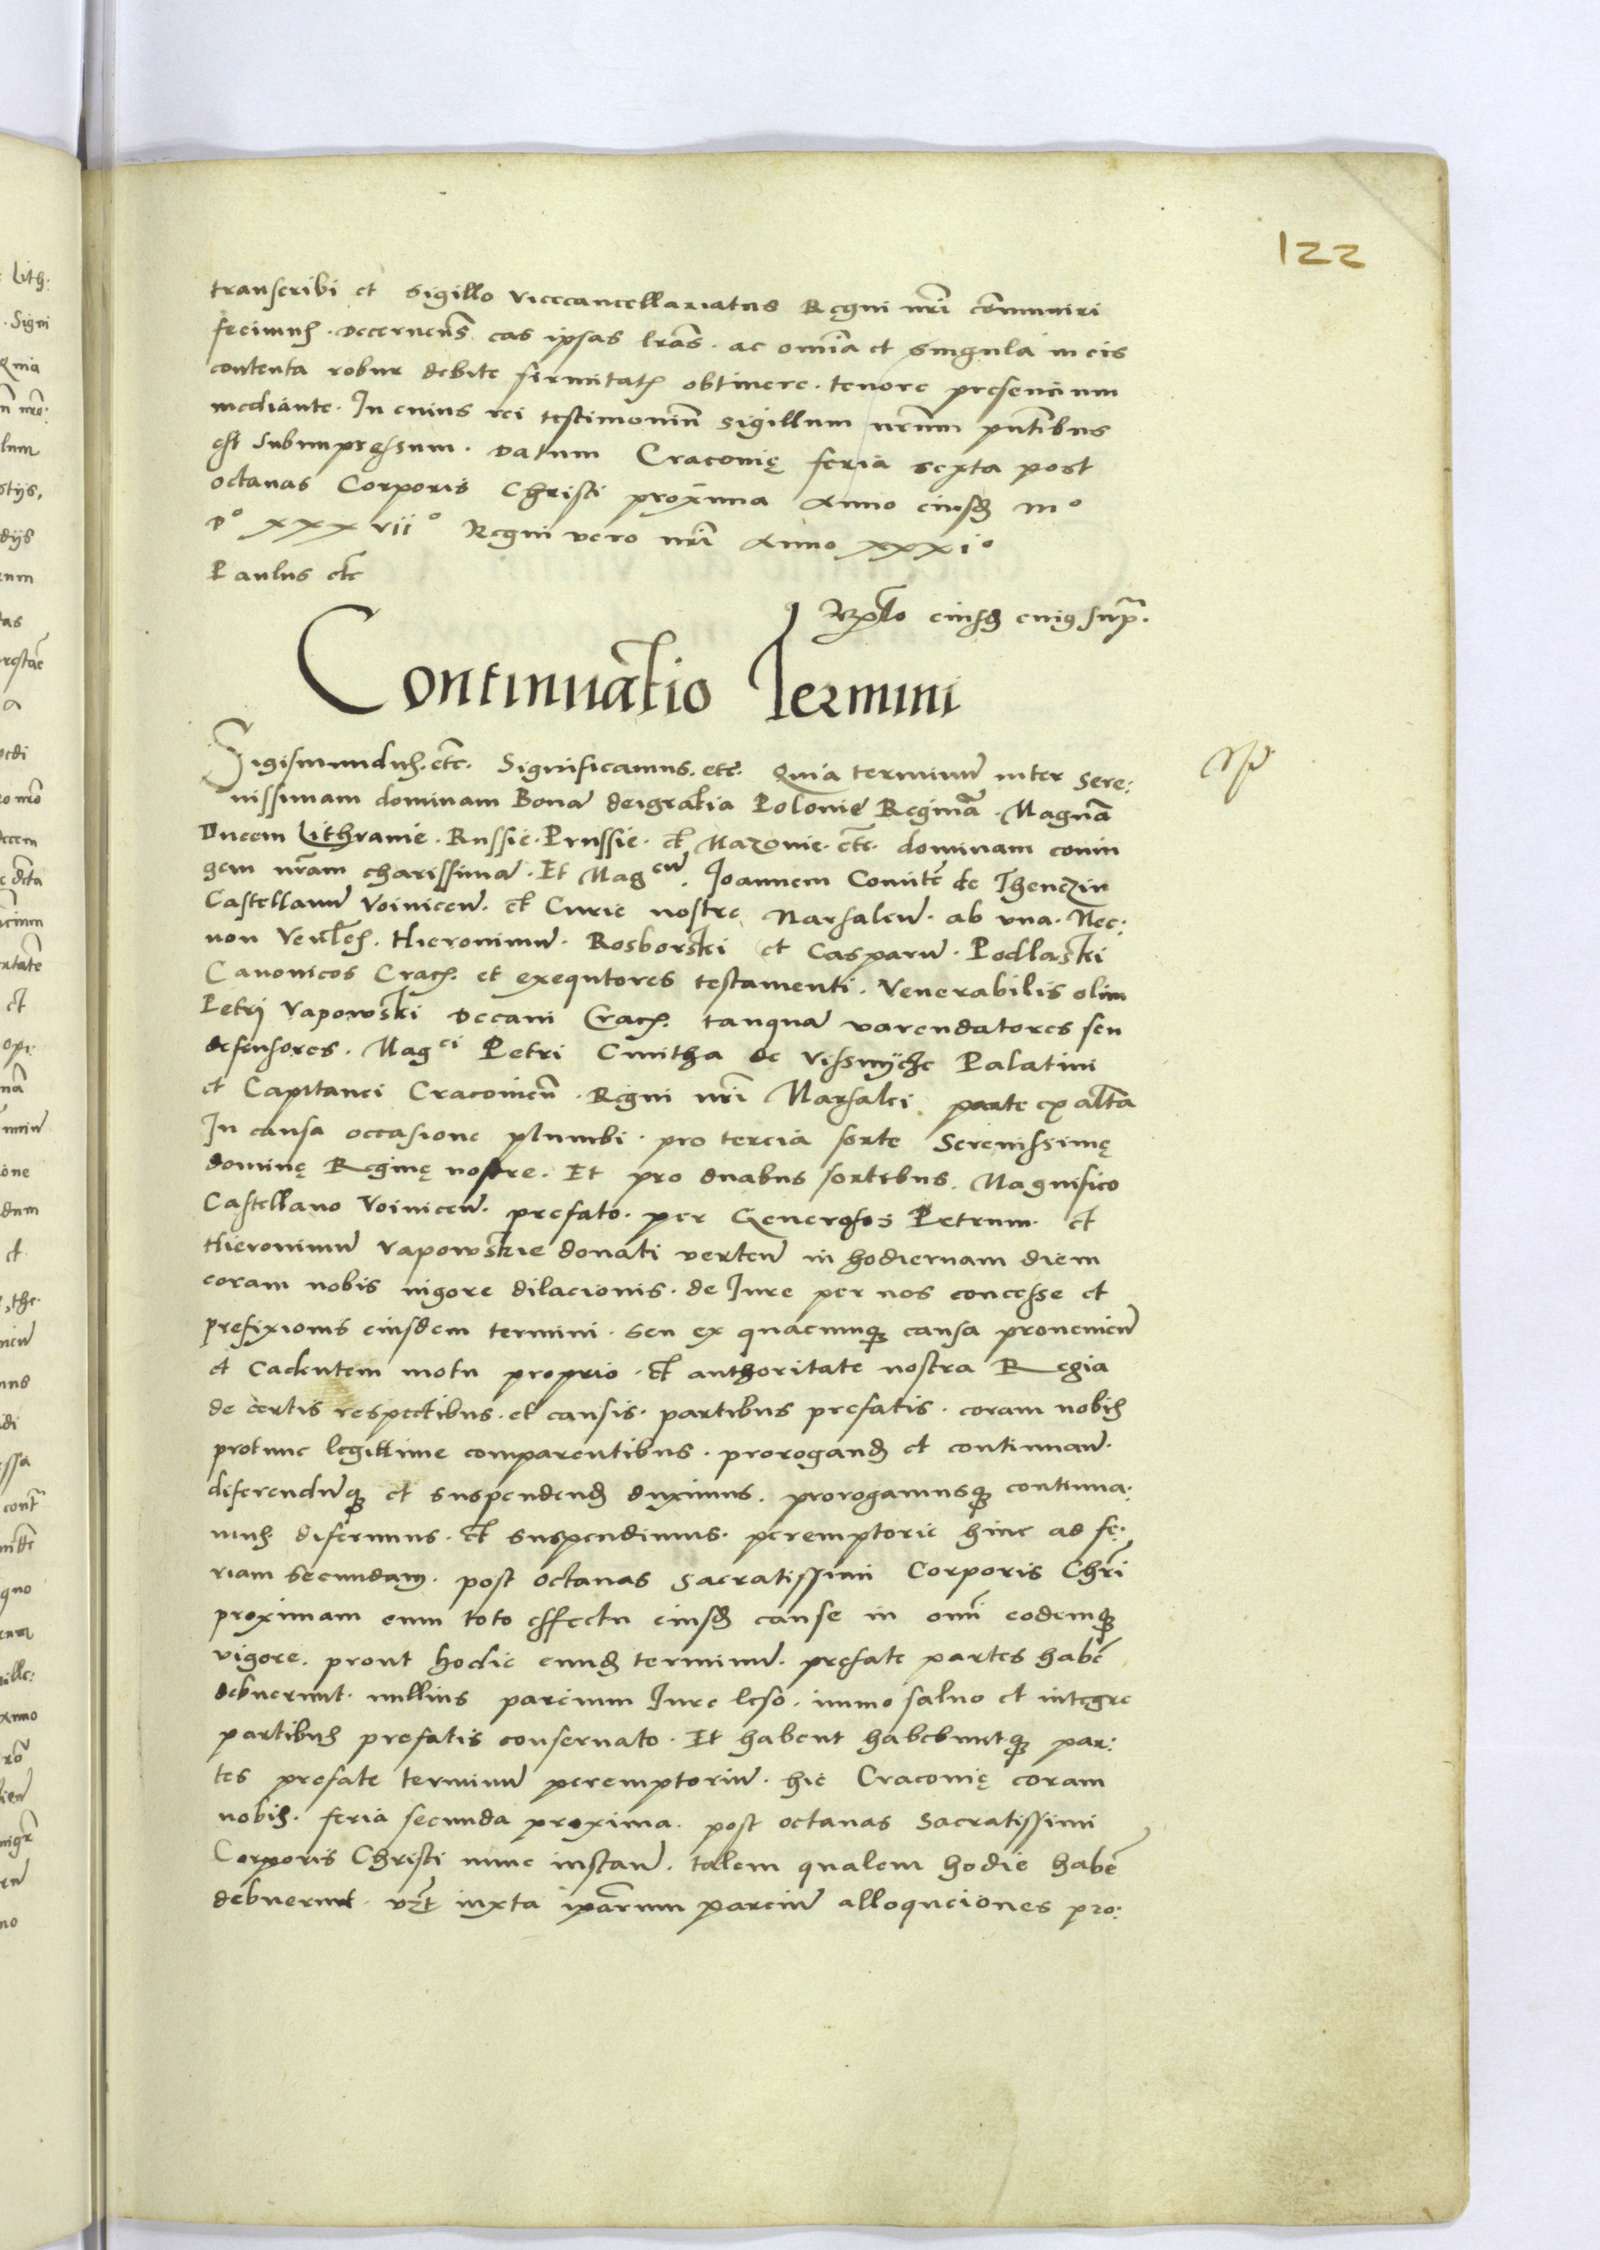 122
transcribi et sigillo vicecancellariatus Regni nri comuniri
fecimus . decernens eas ipsas lras . ac omia et singula in eis
contenta robur debite firmitatis obtinere . tenore presencium
mediante . In cuius rei testimoniu sigillum nrum pntibus
est subimpressum . Datum Cracovię feria sexta post
octavas Corporis Christi proxima Anno eiusd m°
d° xxxvii° Regni vero nri Anno xxxi°
Paulus etc
Rlo eiusd cuius supra.
Continuatio Termini
Sigismundus . etc . Significamus . etc . Quia terminu inter Sere:
nissimam dominam Bona deigratia Polonie Regina . Magna
Ducem Lithvanie . Russie . Prussie . et Mazovie . etc . dominam coniu
gem nram charissima . Et Mag cu . Joannem Comite de Thenczin
Castellanu Voinicen . et Curie nostre Marsalcu . ab una . Nec:
non Venles . Hieronimu . Rosborski et Casparu . Podlaski
Canonicos Crac . et exequtores testamenti . Venerabilis olim
Petri Vapowski Decani Crac . tanqua varendatores seu
defensores . Mag ci Petri Cmitha de Vissnycze Palatini
et Capitanei Cracovien . Regni nri Marsalci . parte ex alta
In causa occasione plumbi . pro tercia sorte Serenissimę
dominę Reginę nostre . Et pro duabus sortibus . Magnifico
Castellano Voinicen . prefato . per Generosos Petrum . et
Hieronimu Vapowskie donati verten in hodiernam diem
coram nobis vigore dilacionis . de Jure per nos concesse et
prefixionis eiusdem termini . seu ex quacunq causa provenien
et Cadentem motu proprio . et authoritate nostra Regia
de certis respectibus . et causis . partibus prefatis . coram nobis
protunc legittime comparentibus . prorogand et continuan .
diferenduq et suspendend duximus . prorogamusq continua:
mus diferimus . et suspendimus . peremptorie hinc ad fe:
riam secundam . post octavas Sacratissimi Corporis Chri
proximam cum toto effectu eiusd cause in omi eodemq
vigore . prout hodie eund terminu . prefate partes habe
debuerunt . nullius parcium Jure leso . immo salvo et integre
partibus prefatis conservato . Et habent habebuntq par:
tes prefate terminu peremptoriu . hic Cracovię coram
nobis . feria secunda proxima . post octavas Sacratissimi
Corporis Christi nunc instan . talem qualem hodie habe
debuerunt . vzt iuxta iparum parciu alloquciones pro: